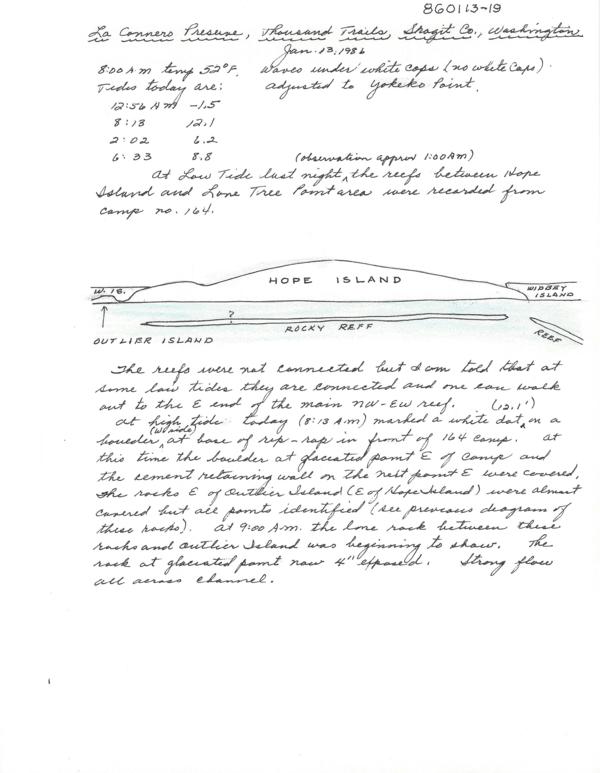 860113-19
La Conners Preserve, Thousand Trails, Skagit Co., Washington
Jan. 13, 1986
8:00 A.M. temp 52°F. Waves under white caps (no white caps).
Tides today are: adjusted to Yokeko Point.
12:56 AM -1.5
8:13 12.1
2:02 6.2
6:33 8.8 (observation approx 1:00 AM)
At Low Tide last night ^ the reefs between Hope
Island and Lone Tree Point area were recorded from
camp no. 164.
HOPE ISLAND
W. IS.
WIDBEY
ISLAND
?
ROCKY REFF
REEF
OUTLIER ISLAND
The reefs were not connected but I am told that at
some low tides they are connected and one can walk
out to the E end of the main NW-EW reef. (12.1')
At high tide today (8:13 A.M) marked a white dot ^ on a
(W side)
bouelder ^ at base of rip-rap in front of 164 camp. At
this time the boulder at glaciated point E of camp and
the cement retaining wall on the next point E were covered.
The rocks E of Outlier Island (E of Hope Island) were almost
covered but all points identified (see previous diagram of
these rocks). At 9:00 A.M. the lone rock between these
rocks and Outlier Island was beginning to show. The
rock at glaciated point now 4" exposed. Strong flow
all across channel.